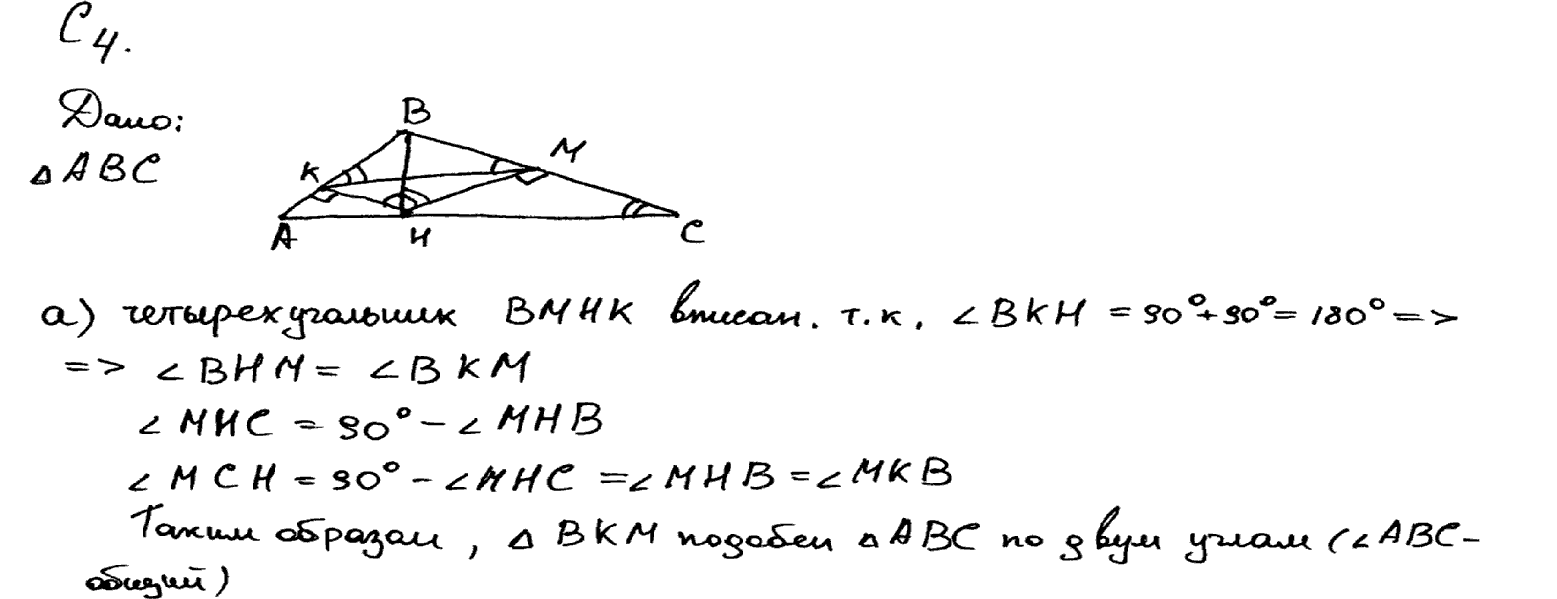 C4.
Дано:
△ABC
B
K
M
A
H
C
а) четырехугольник BMHK вписан. т.к. ∠BKH = 90°+90°= 180° =>
=> ∠BHM = ∠BKM
∠MHC = 90° - ∠MHB
∠MCH = 90° - ∠MHC = ∠MHB = ∠MKB
Таким образом, △BKM подобен △ABC по двум углам (∠ABC-
общий)